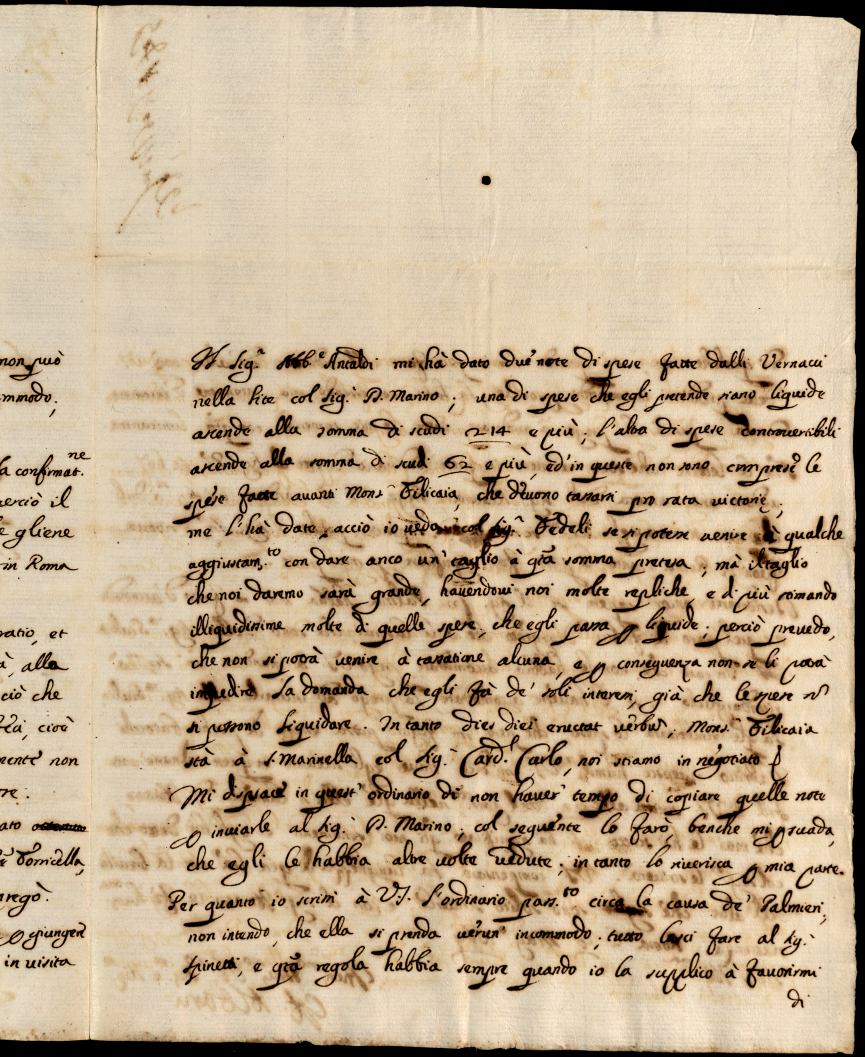 non può
mmodo;
la confirmat.ne
perciò il
e gliene
in Roma
ratio, et
à, alla
ciò che
cioè
mente non
re.
ato
Torricella,
regò.
giunger
in visita
Il Sig.r Abb.e Antaldi mi hà dato due note di spese fatte dalli Vernacci
nella lite col Sig.r D. Marino; una di spese che egli pretende siano liquide
ascende alla somma di scudi 214 e più; l'altra di spese controvertibili
ascende alla somma di scudi 62 e più, ed' in queste non sono comprese le
spese fatte avanti Mons.r Filicaia, che devono tassarsi pro rata victorię;
me l'hà date, acciò io veda col Sig.r Fedeli se si potesse venire à qualche
aggiustam.to con dare anco un' taglio à q̃ta somma pretesa; mà il taglio
che noi daremo sarà grande, havendovi noi molte repliche, e di più stimando
illiquidissime molte di quelle spese, che egli passa ꝑ liquide; perciò prevedo,
che non si potrà venire à tassatione alcuna, e ꝑ conseguenza non se li potrà
impedire la domanda che egli fà de' soli interessi, già che le spese nõ
si possono liquidare. In tanto dies diei eructat verbũ; Mons.r Filicaia
stà à S. Marinella col Sig.r Card.l Carlo, noi stiamo in negotiato
Mi dispiace in quest' ordinario di non haver' tempo di copiare quelle note
ꝑ inviarle al Sig.r D. Marino; col seguente lo farò, benche mi ꝑsuada,
che egli le habbia altre volte vedute; in tanto lo riverisca ꝑ mia parte.
Per quanto io scrissi à V.S. l'ordinario pass.to circa la causa de' Palmieri,
non intendo, che ella si prenda verun' incommodo; tutto lasci fare al Sig.r
Spinetti, e q̃ta regola habbia sempre quando io la supplico à favorirmi
di